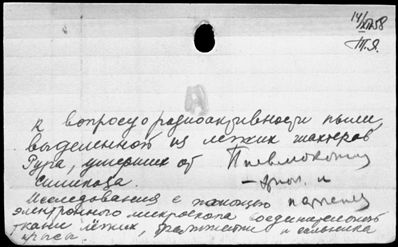 14/XII 58
Т.Я.
к вопросу о радиоактивности пыли,
выделенной из легких шахтеров
Рура, умерших от Пневмокониоза
силикоза.
Исследования с помощью
электронного микроскопа соединительной
ткани легких,
крысы.